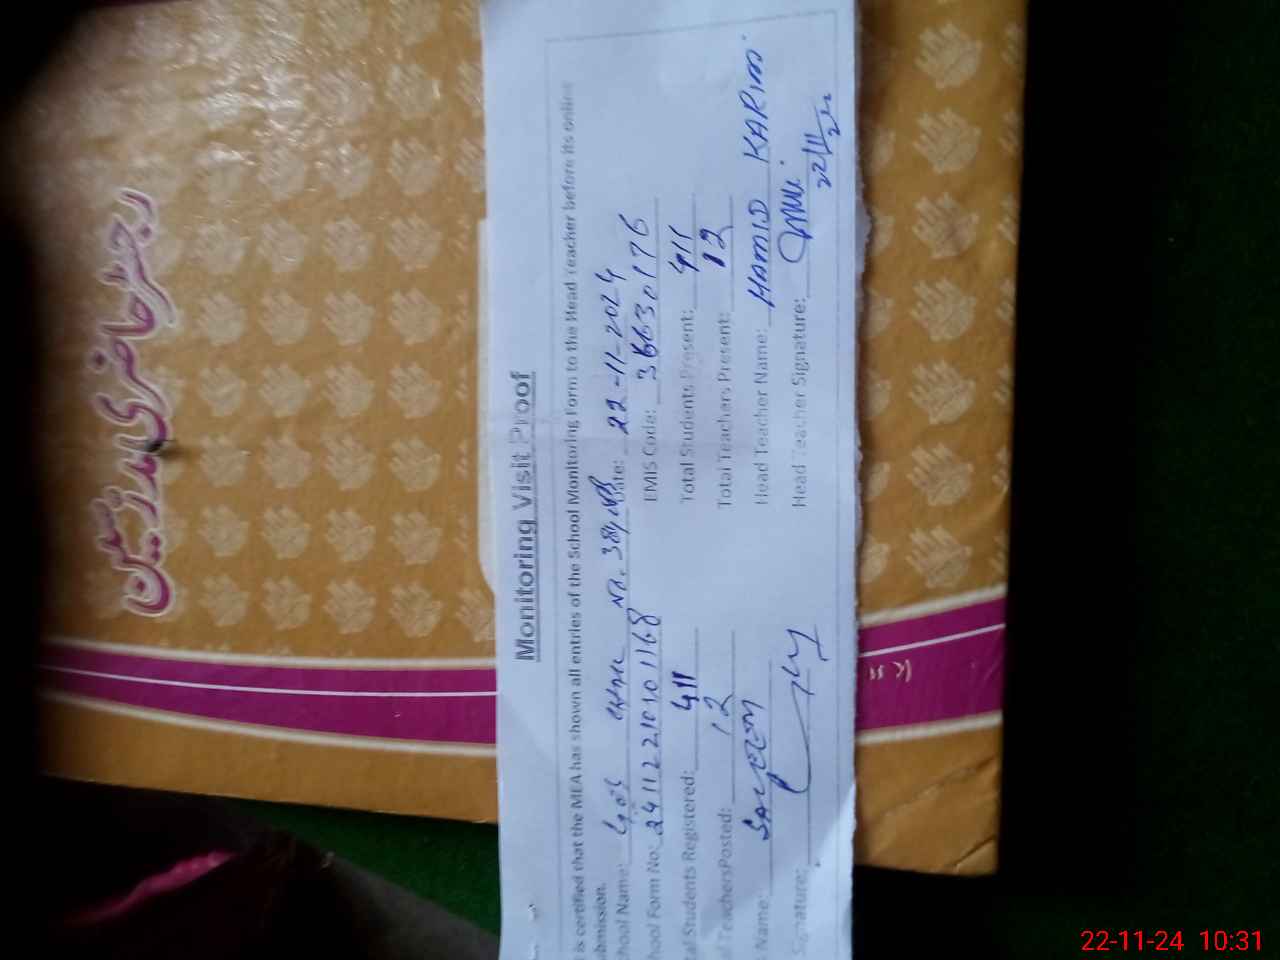 رجسٹر حاضری مدرسین
Monitoring Visit Proof
is certified that the MEA has shown all entries of the School Monitoring Form to the Head Teacher before its online
bmission.
hool Name: Date: 22-11-2024
hool Form No: EMIS Code:
tal Students Registered: 411 Total Students Present: 411
l TeachersPosted: 12 Total Teachers Present: 12
Name: SALEEM Head Teacher Name: HAMID KARIM
Signature: Head Teacher Signature:
22/11/24
22-11-24 10:31